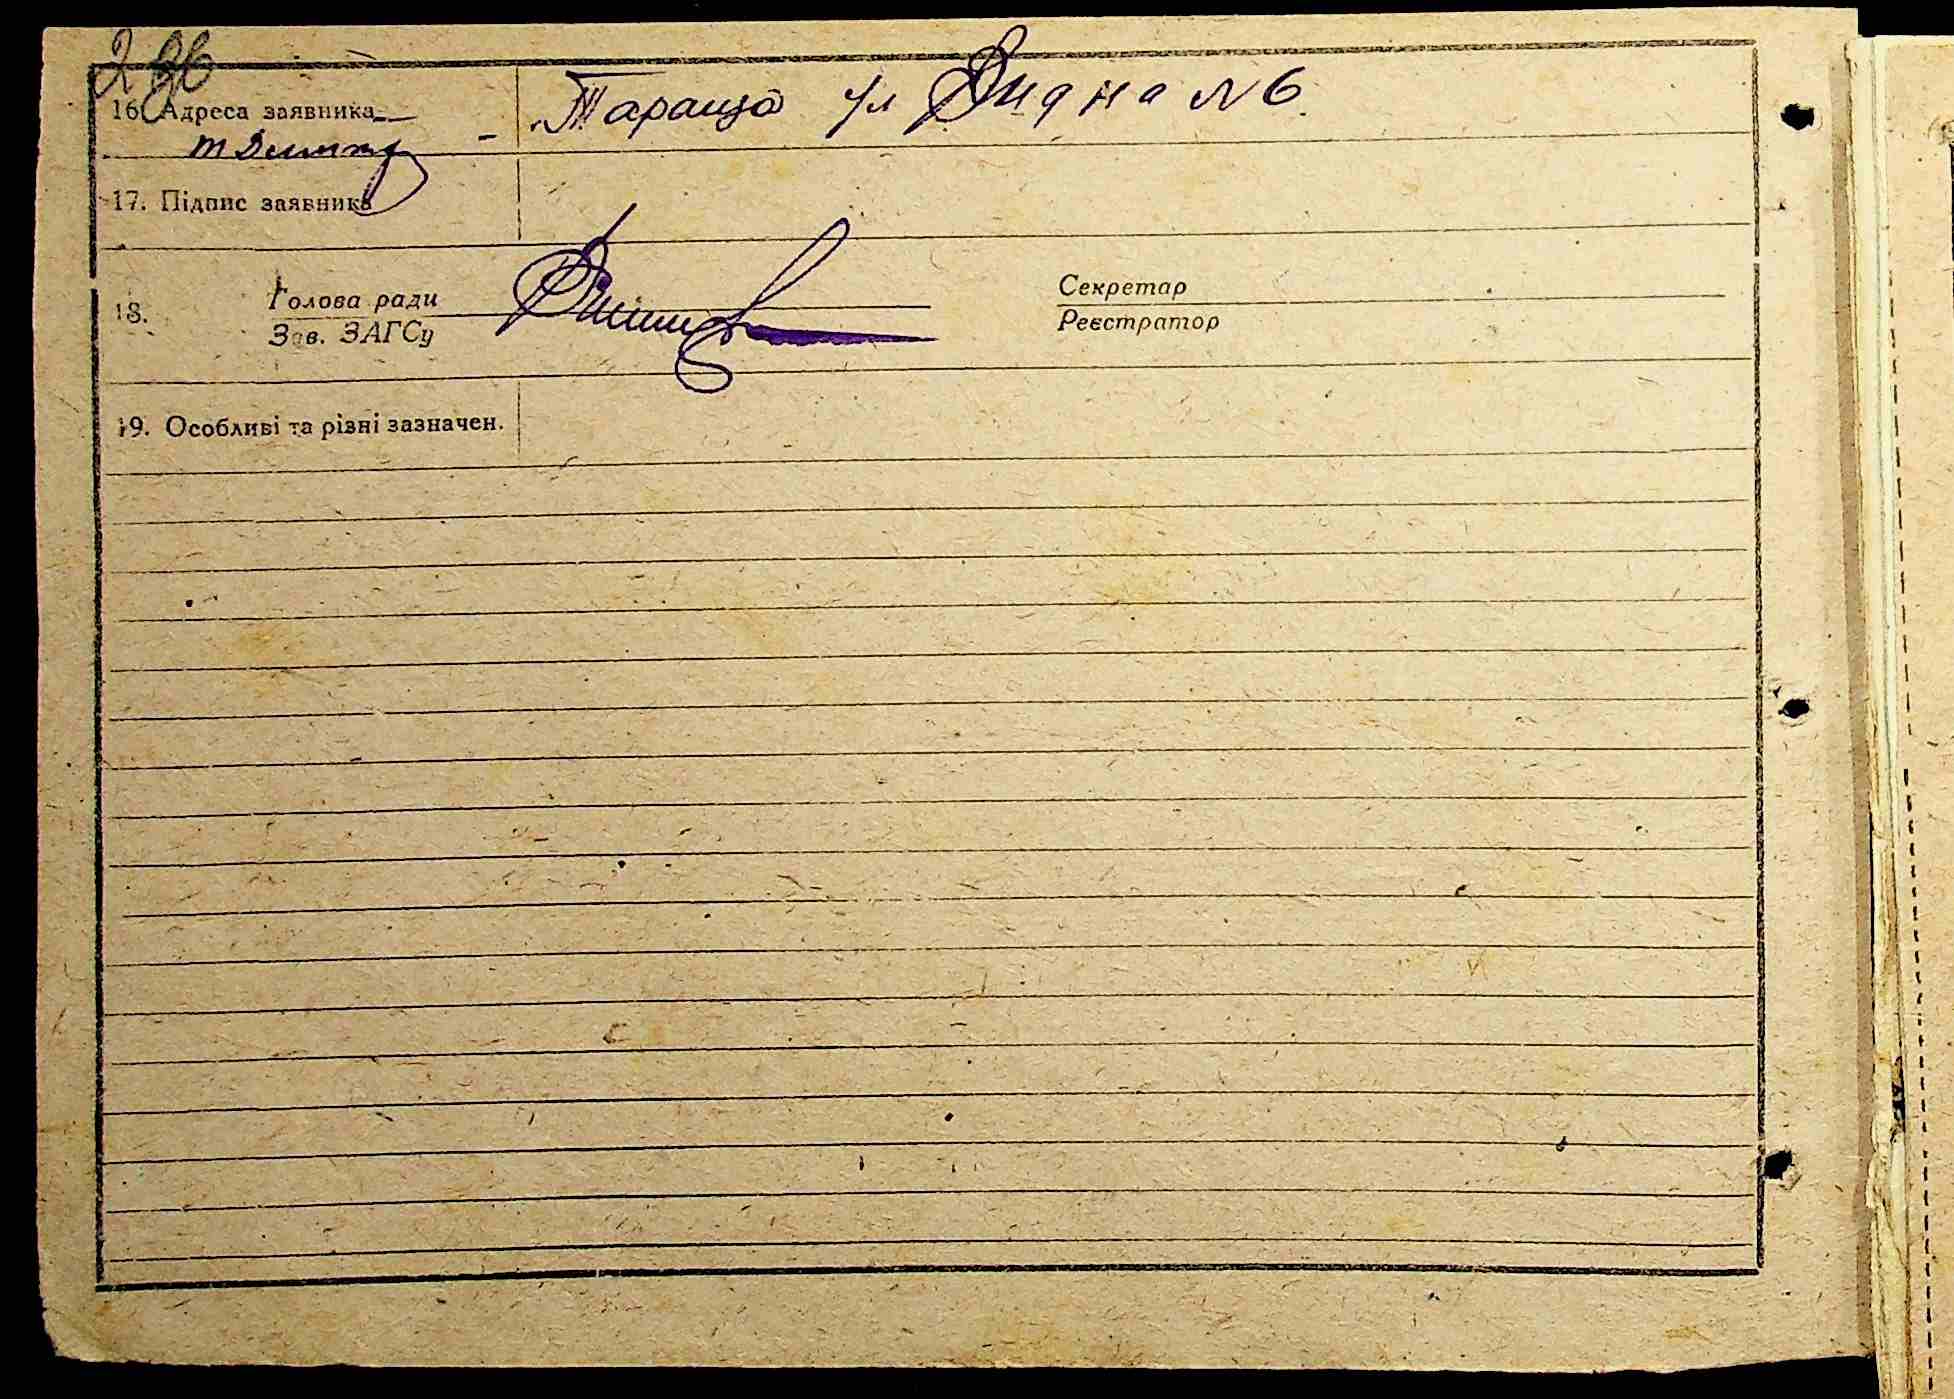 16. Адреса заявника
Тараща ул Видна №6
17. Підпис заявника
18.
Голова ради
Зав. ЗАГСу
Секретар
Реєстратор
19. Особливі та різні зазначен.